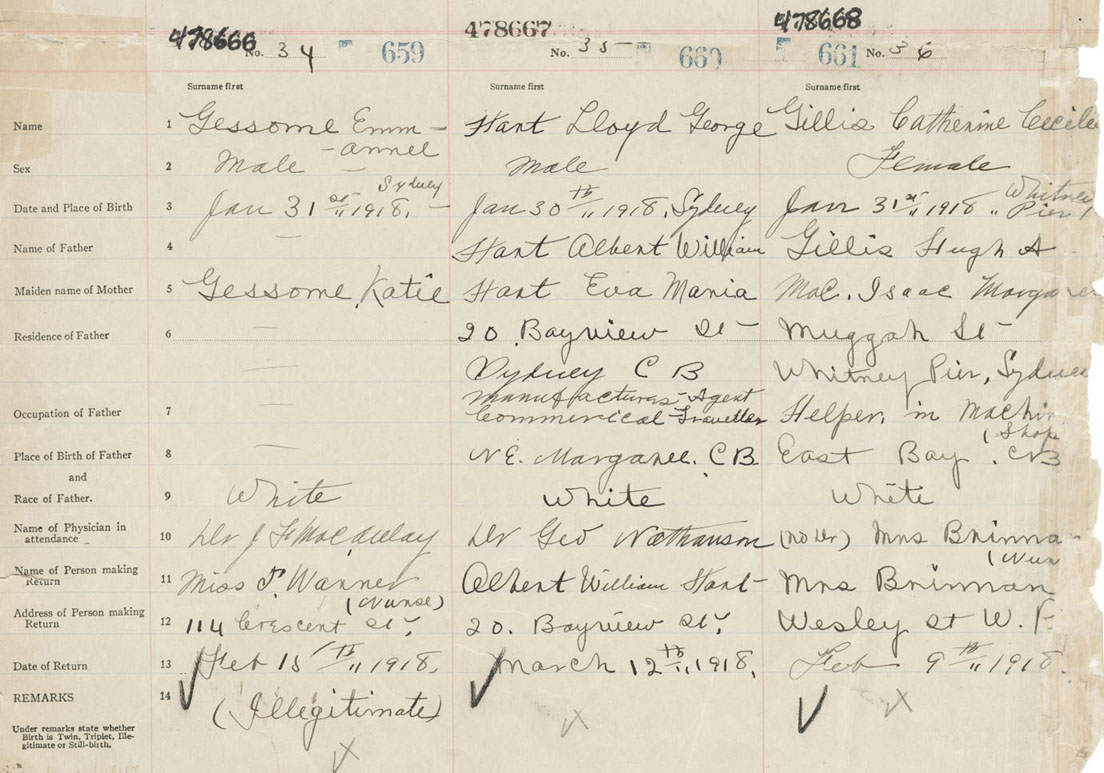 478666 478667 478668
No. 34 659 No. 35 660 661 No. 36
Surname first Surname first Surname first
Name 1 Gessome Emm- Hart Lloyd George Gillis Catherine Cecilia
-annel
Sex 2 Male - Male Female
Sydney Whitney
Date and Place of Birth 3 Jan 31st " 1918, - Jan 30th " 1918, Sydney Jan 31st " 1918 " Pier
Name of Father 4 — Hart Albert William Gillis Hugh A
Maiden name of Mother 5 Gessome Katie Hart Eva Maria Mac. Isaac
Residence of Father 6 — 20 Bayview St Muggah St
— Sydney C B Whitney Pier, Sydney
manufacturas Agent
Occupation of Father 7 — Commerical Traveller Helper, in Machin
(Shop
Place of Birth of Father 8 — N E. Margaree. C B East Bay . C B
and
Race of Father. 9 White White White
Name of Physician in
attendance 10 Dr J F Macaulay Dr Geo Nathanson (no Dr) Mrs Brinna-
(Nurs
Name of Person making
Return 11 Miss Wanner Albert William Hart Mrs Brinman
(Nurse)
Address of Person making
Return 12 114 Crescent St. 20. Bayview St. Wesley St W. P.
Date of Return 13 Feb 15th " 1918, March 12th " 1918, Feb 9th " 1918.
REMARKS 14 (Illegitimate)
Under remarks state whether
Birth is Twin, Triplet, Ille-
gitimate or Still-birth.